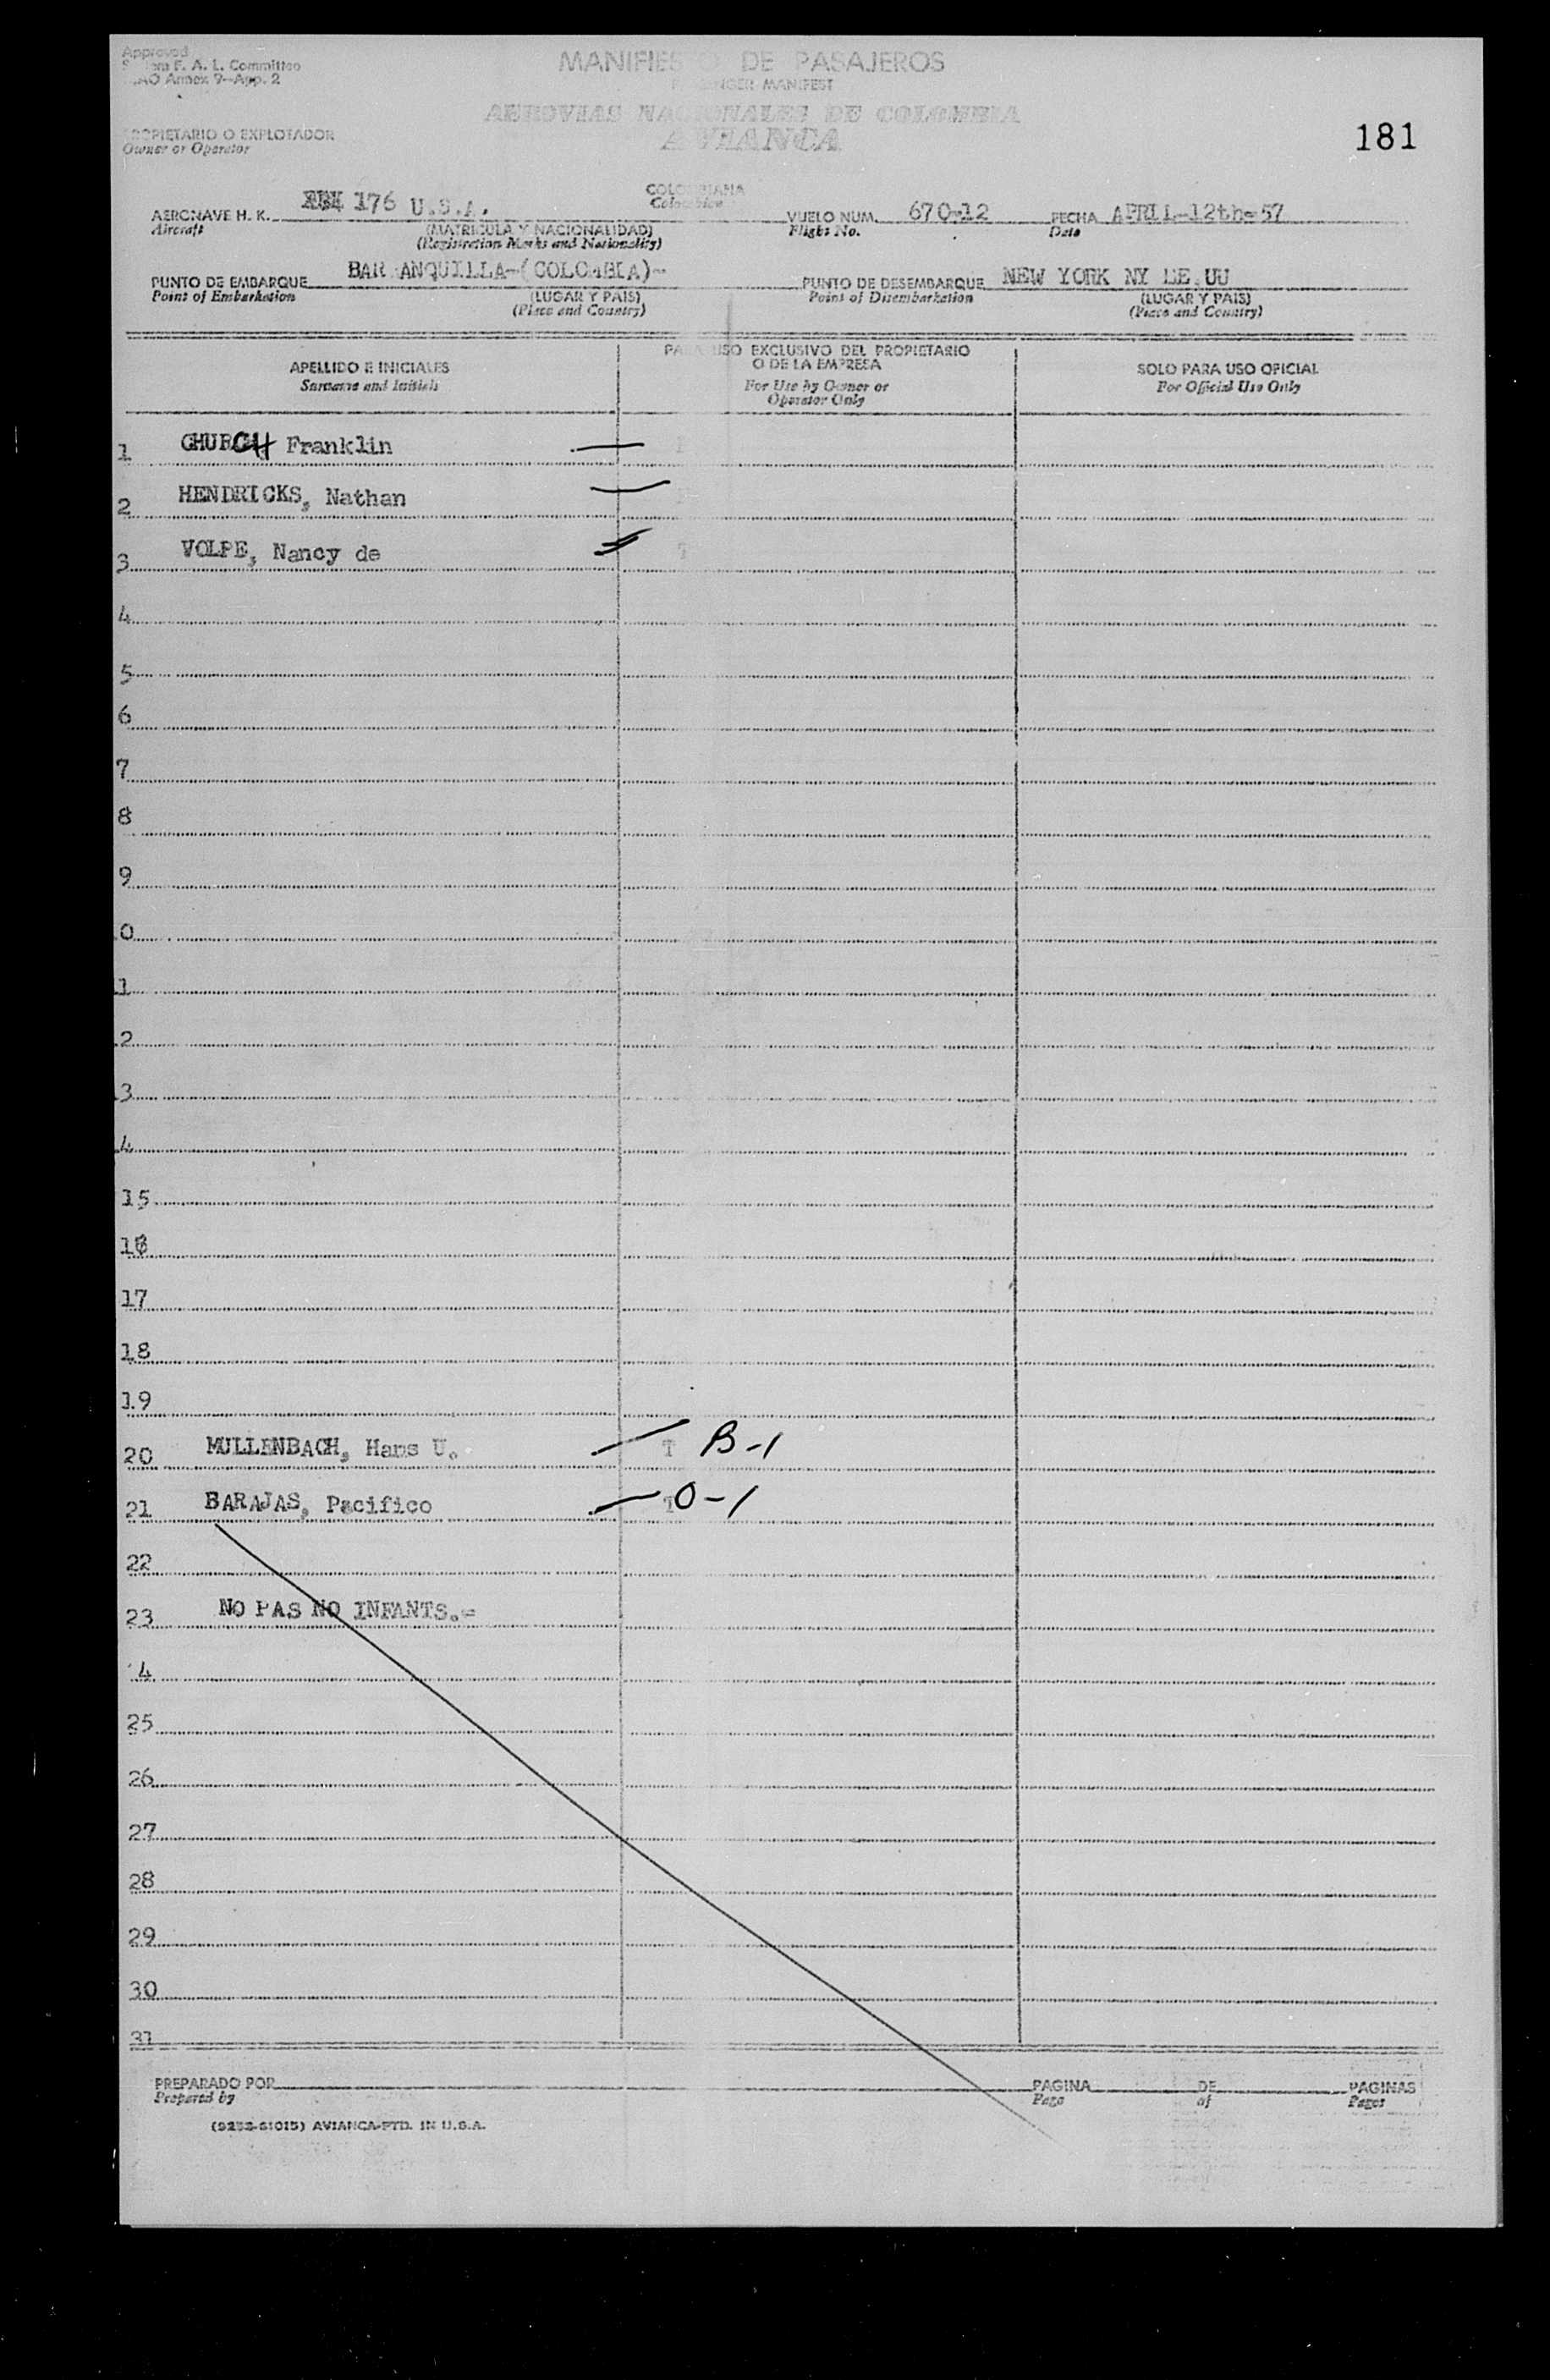 Approved
F. A. L. Committee
Annex 9-App. 2
MANIFIESTO DE PASAJEROS
PASSENGER MANIFEST
AEROVIAS NACIONALES DE COLOMBIA
AVIANCA
181
PROPIETARIO O EXPLOTADOR
Owner or Operator
COLOMBIANA
Colombian
AERONAVE H. K. 176 U.S.A. VUELO NUM. 670-12 FECHA APRIL-12th-57
Aircraft (MATRICULA Y NACIONALIDAD) Flight No. Date
(Registration Marks and Nationality)
PUNTO DE EMBARQUE BARRANQUILLA-(COLOMBIA)- PUNTO DE DESEMBARQUE NEW YORK NY EE.UU
Point of Embarkation (LUGAR Y PAIS) Point of Disembarkation (LUGAR Y PAIS)
(Place and Country) (Place and Country)
APELLIDO E INICIALES
Surname and Initials
PARA USO EXCLUSIVO DEL PROPIETARIO
O DE LA EMPRESA
For Use by Owner or
Operator Only
SOLO PARA USO OFICIAL
For Official Use Only
1 CHURCH Franklin
2 HENDRICKS, Nathan
3 VOLPE, Nancy de T
4
5
6
7
8
9
0
1
2
3
4
15
16
17
18
19
20 MULLENBACH, Hans U. T B-1
21 BARAJAS, Pacifico T O-1
22
23 NO PAS NO INFANTS.=
4
25
26
27
28
29
30
31
PREPARADO POR PAGINA DE PAGINAS
Prepared by Page of Pages
(9253-51015) AVIANCA-PTD. IN U.S.A.